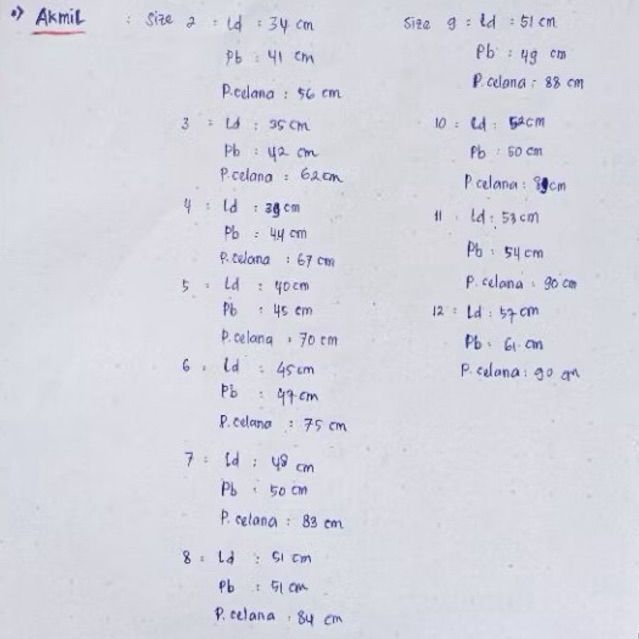 •) Akmil : Size 2 : Ld : 34 cm
Pb : 41 cm
P.celana : 56 cm
3 : Ld : 35 cm
Pb : 42 cm
P.celana : 62 cm
4 : Ld : 39 cm
Pb : 44 cm
P.celana : 67 cm
5 : Ld : 40 cm
Pb : 45 cm
P.celana : 70 cm
6 : Ld : 45 cm
Pb : 47 cm
P.celana : 75 cm
7 : Ld : 48 cm
Pb : 50 cm
P.celana : 83 cm
8 : Ld : 51 cm
Pb : 51 cm
P.celana : 84 cm
Size 9 : Ld : 51 cm
Pb : 49 cm
P.celana : 88 cm
10 : Ld : 52 cm
Pb : 50 cm
P.celana : cm
11 : Ld : 53 cm
Pb : 54 cm
P.celana : 90 cm
12 : Ld : 57 cm
Pb : 61 cm
P.celana : 90 cm